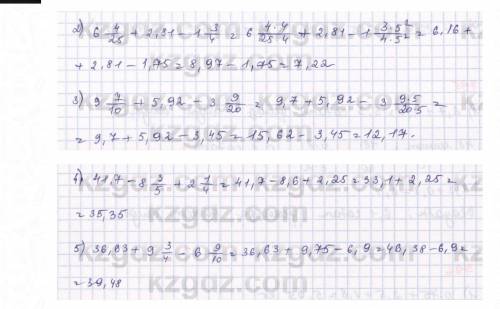 2) 6 4/25 + 2,81 - 1 3/4 = 6 4·4/25·4 + 2,81 - 1 3·5²/4·5² = 6,16 +
+ 2,81 - 1,75 = 8,97 - 1,75 = 7,22
3) 9 7/10 + 5,92 - 3 9/20 = 9,7 + 5,92 - 3 9·5/20·5 =
= 9,7 + 5,92 - 3,45 = 15,62 - 3,45 = 12,17.
4) 41,7 - 8 3/5 + 2 1/4 = 41,7 - 8,6 + 2,25 = 33,1 + 2,25 =
= 35,35
5) 36,63 + 9 3/4 - 6 9/10 = 36,63 + 9,75 - 6,9 = 46,38 - 6,9 =
= 39,48